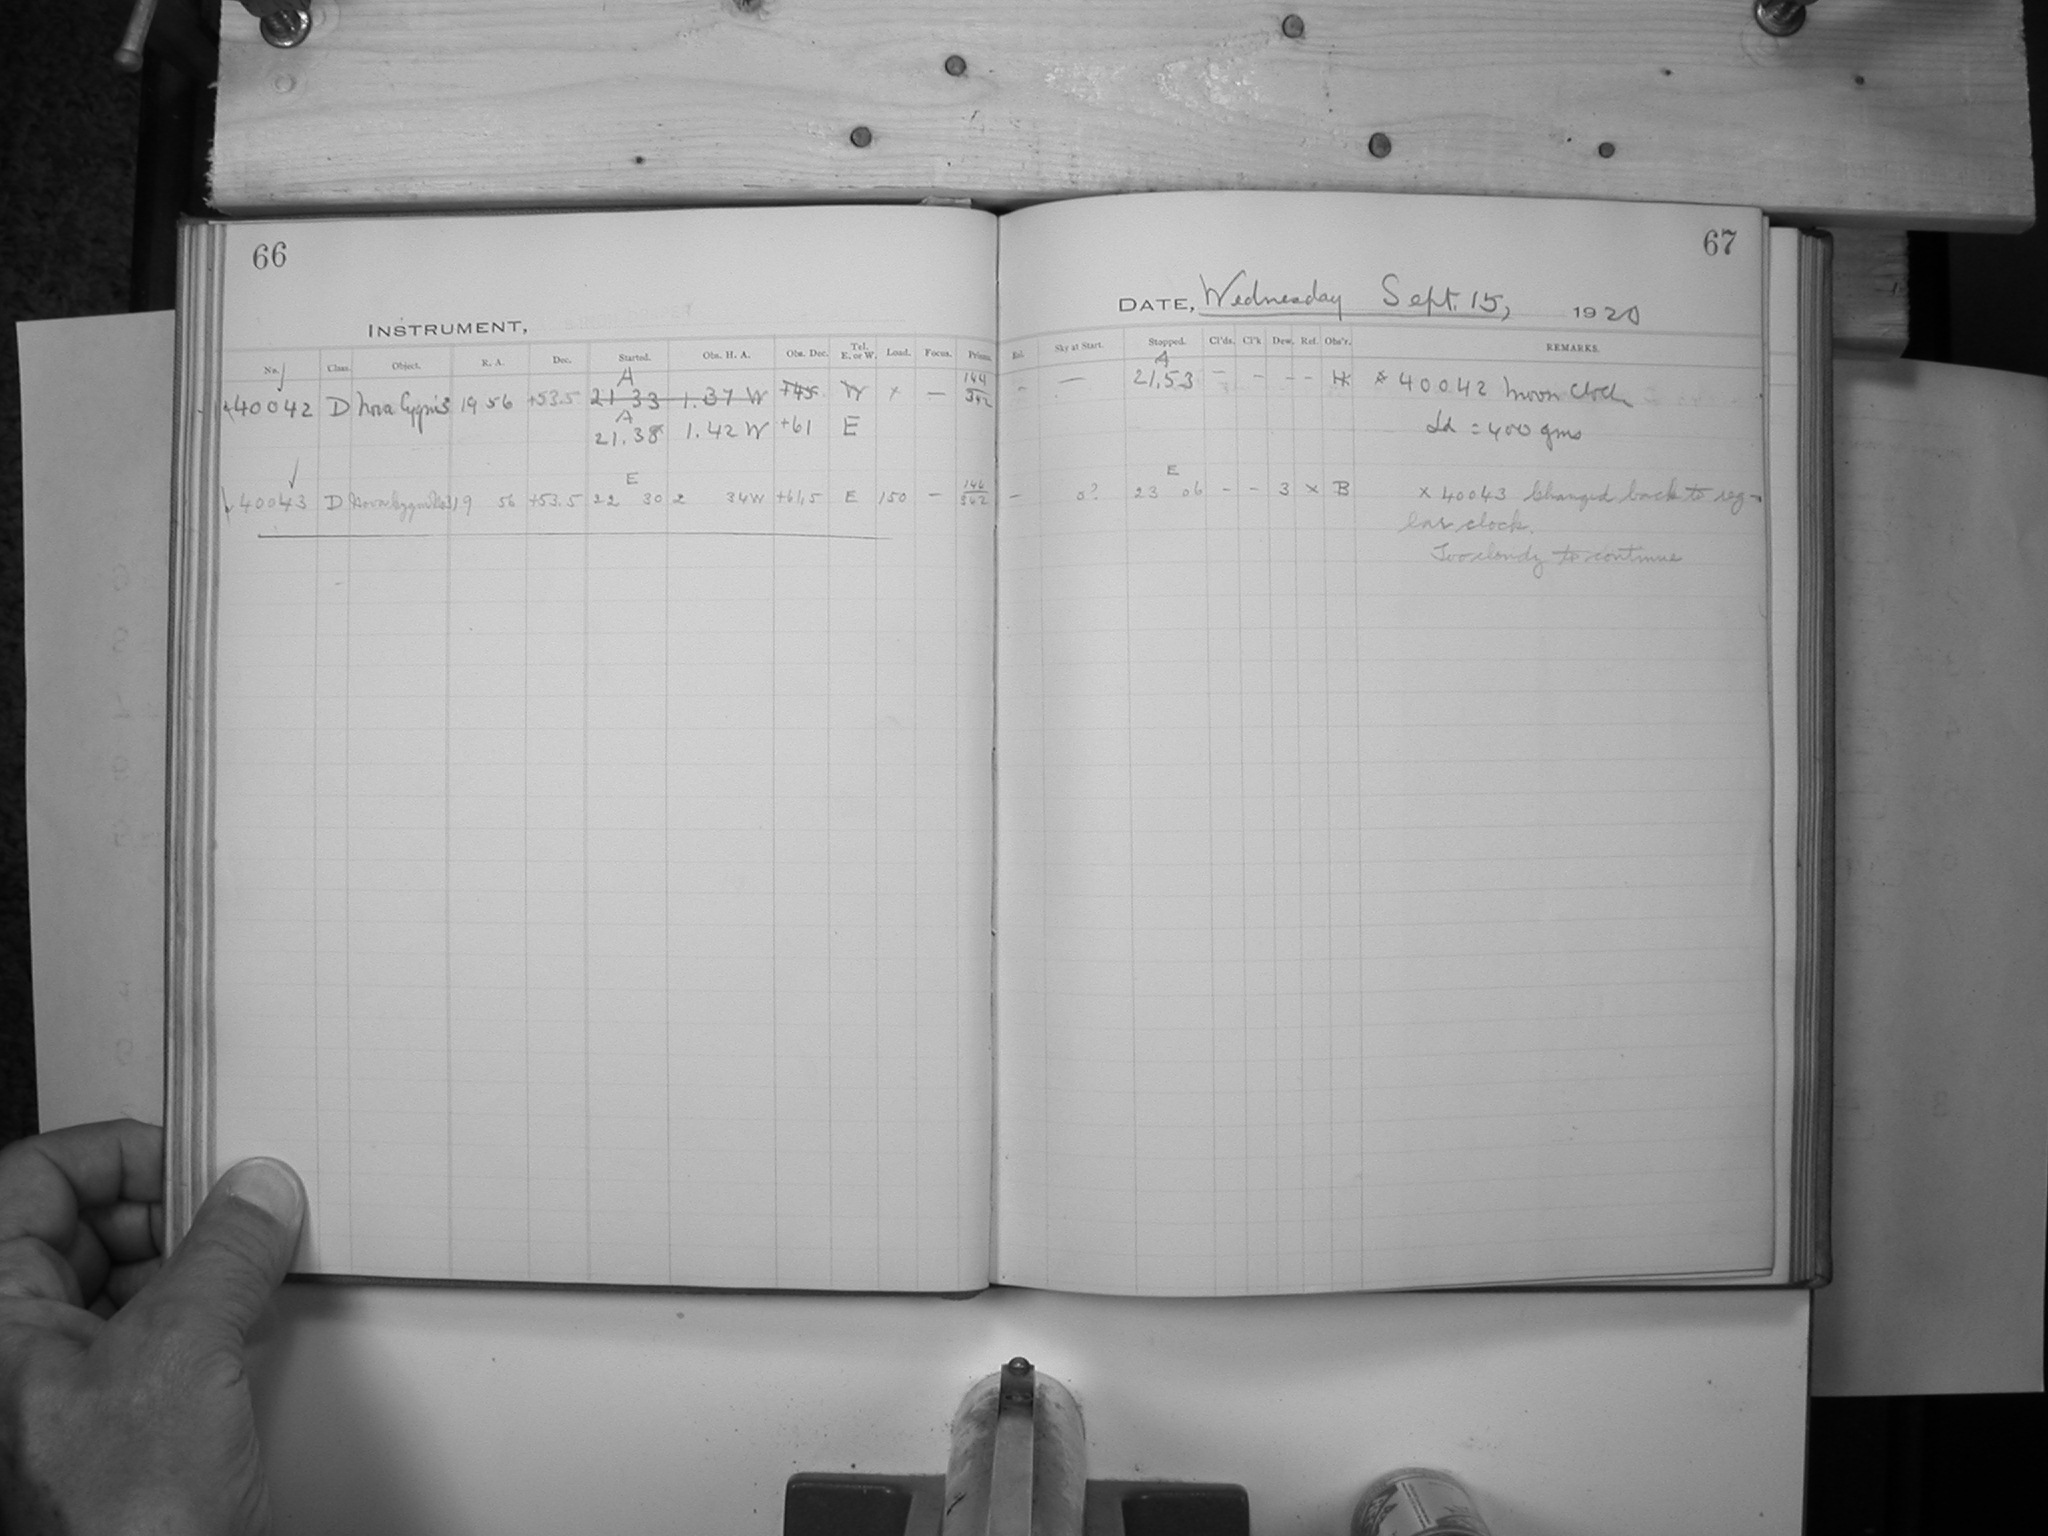 66
67
INSTRUMENT,
DATE, Wednesday Sept. 15, 1920
No. Class. Object. R. A. Dec. Started. Obs. H. A. Obs. Dec. Tel. E. or W. Load. Focus. Prisms. Sky at Start. Stopped. Cl'ds. Cl'k Dew. Ref. Obs'r. REMARKS.
A 144 A
40042 D Nova Cygni 3 19 56 +53.5 21 33 1.37 W +45 W x — 342 - — 21.53 - - - - H x 40042 Moon Clock
A
21.38 1.42 W +61 E Ld = 400 gms
E 144 E
40043 D Nova Cygni No3 19 56 +53.5 22 30 2 34W +61.5 E 150 - 342 - 0? 23 06 - - 3 x B x 40043 Changed back to reg-
ular clock.
Too cloudy to continue